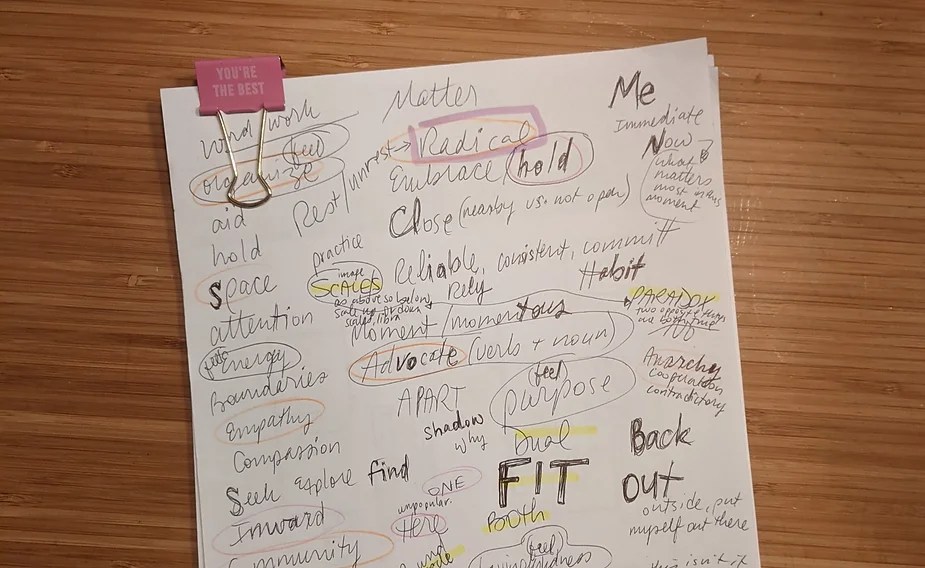 YOU'RE
THE BEST
Matter
Me
work
Immediate
feel
Radical
Now
organize
Rest/unrest →
Embrace/hold
what
matters
most in this
moment
aid
Close (nearby vs. not open)
hold
practice
Reliable, consistent, committ
Space
image
SCALES
Rely
Habit
as above so below,
scale up or down
scales, libra
PARADOX
two opposite things
attention
Moment/momentous
Energy
Advocate (verb + noun)
Anarchy
cooperation
contradictory
Bounderies
APART
feel
purpose
Empathy
shadow
why
Dual
Back
Compassion
FIT
out
Seek explore find
ONE
outside, put
myself out there
Inward
unpopular.
Here
BOTH
Community
feel